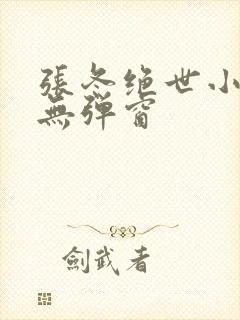 張冬绝世小
無弹窗
劍武者